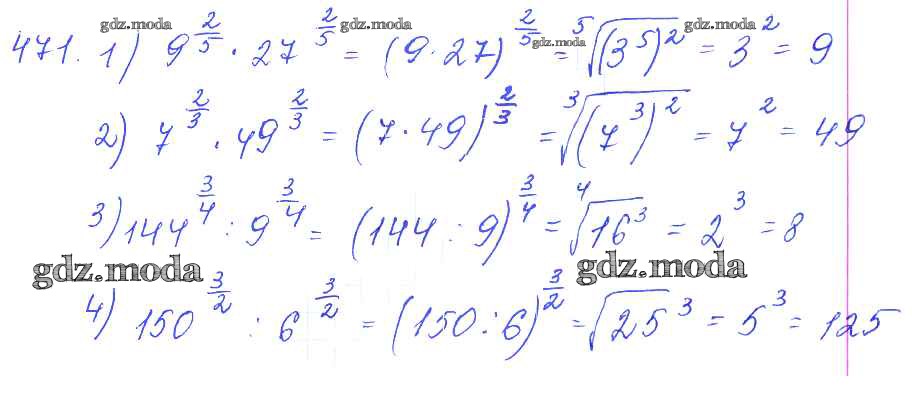 gdz.moda gdz.moda gdz.moda
471. 1) 9^(2/5) · 27^(2/5) = (9·27)^(2/5) = ⁵√(3⁵)² = 3² = 9
gdz.moda
2) 7^(2/3) · 49^(2/3) = (7·49)^(2/3) = ³√(7³)² = 7² = 49
3) 144^(3/4) : 9^(3/4) = (144 : 9)^(3/4) = ⁴√16³ = 2³ = 8
gdz.moda gdz.moda
4) 150^(3/2) : 6^(3/2) = (150 : 6)^(3/2) = √25³ = 5³ = 125